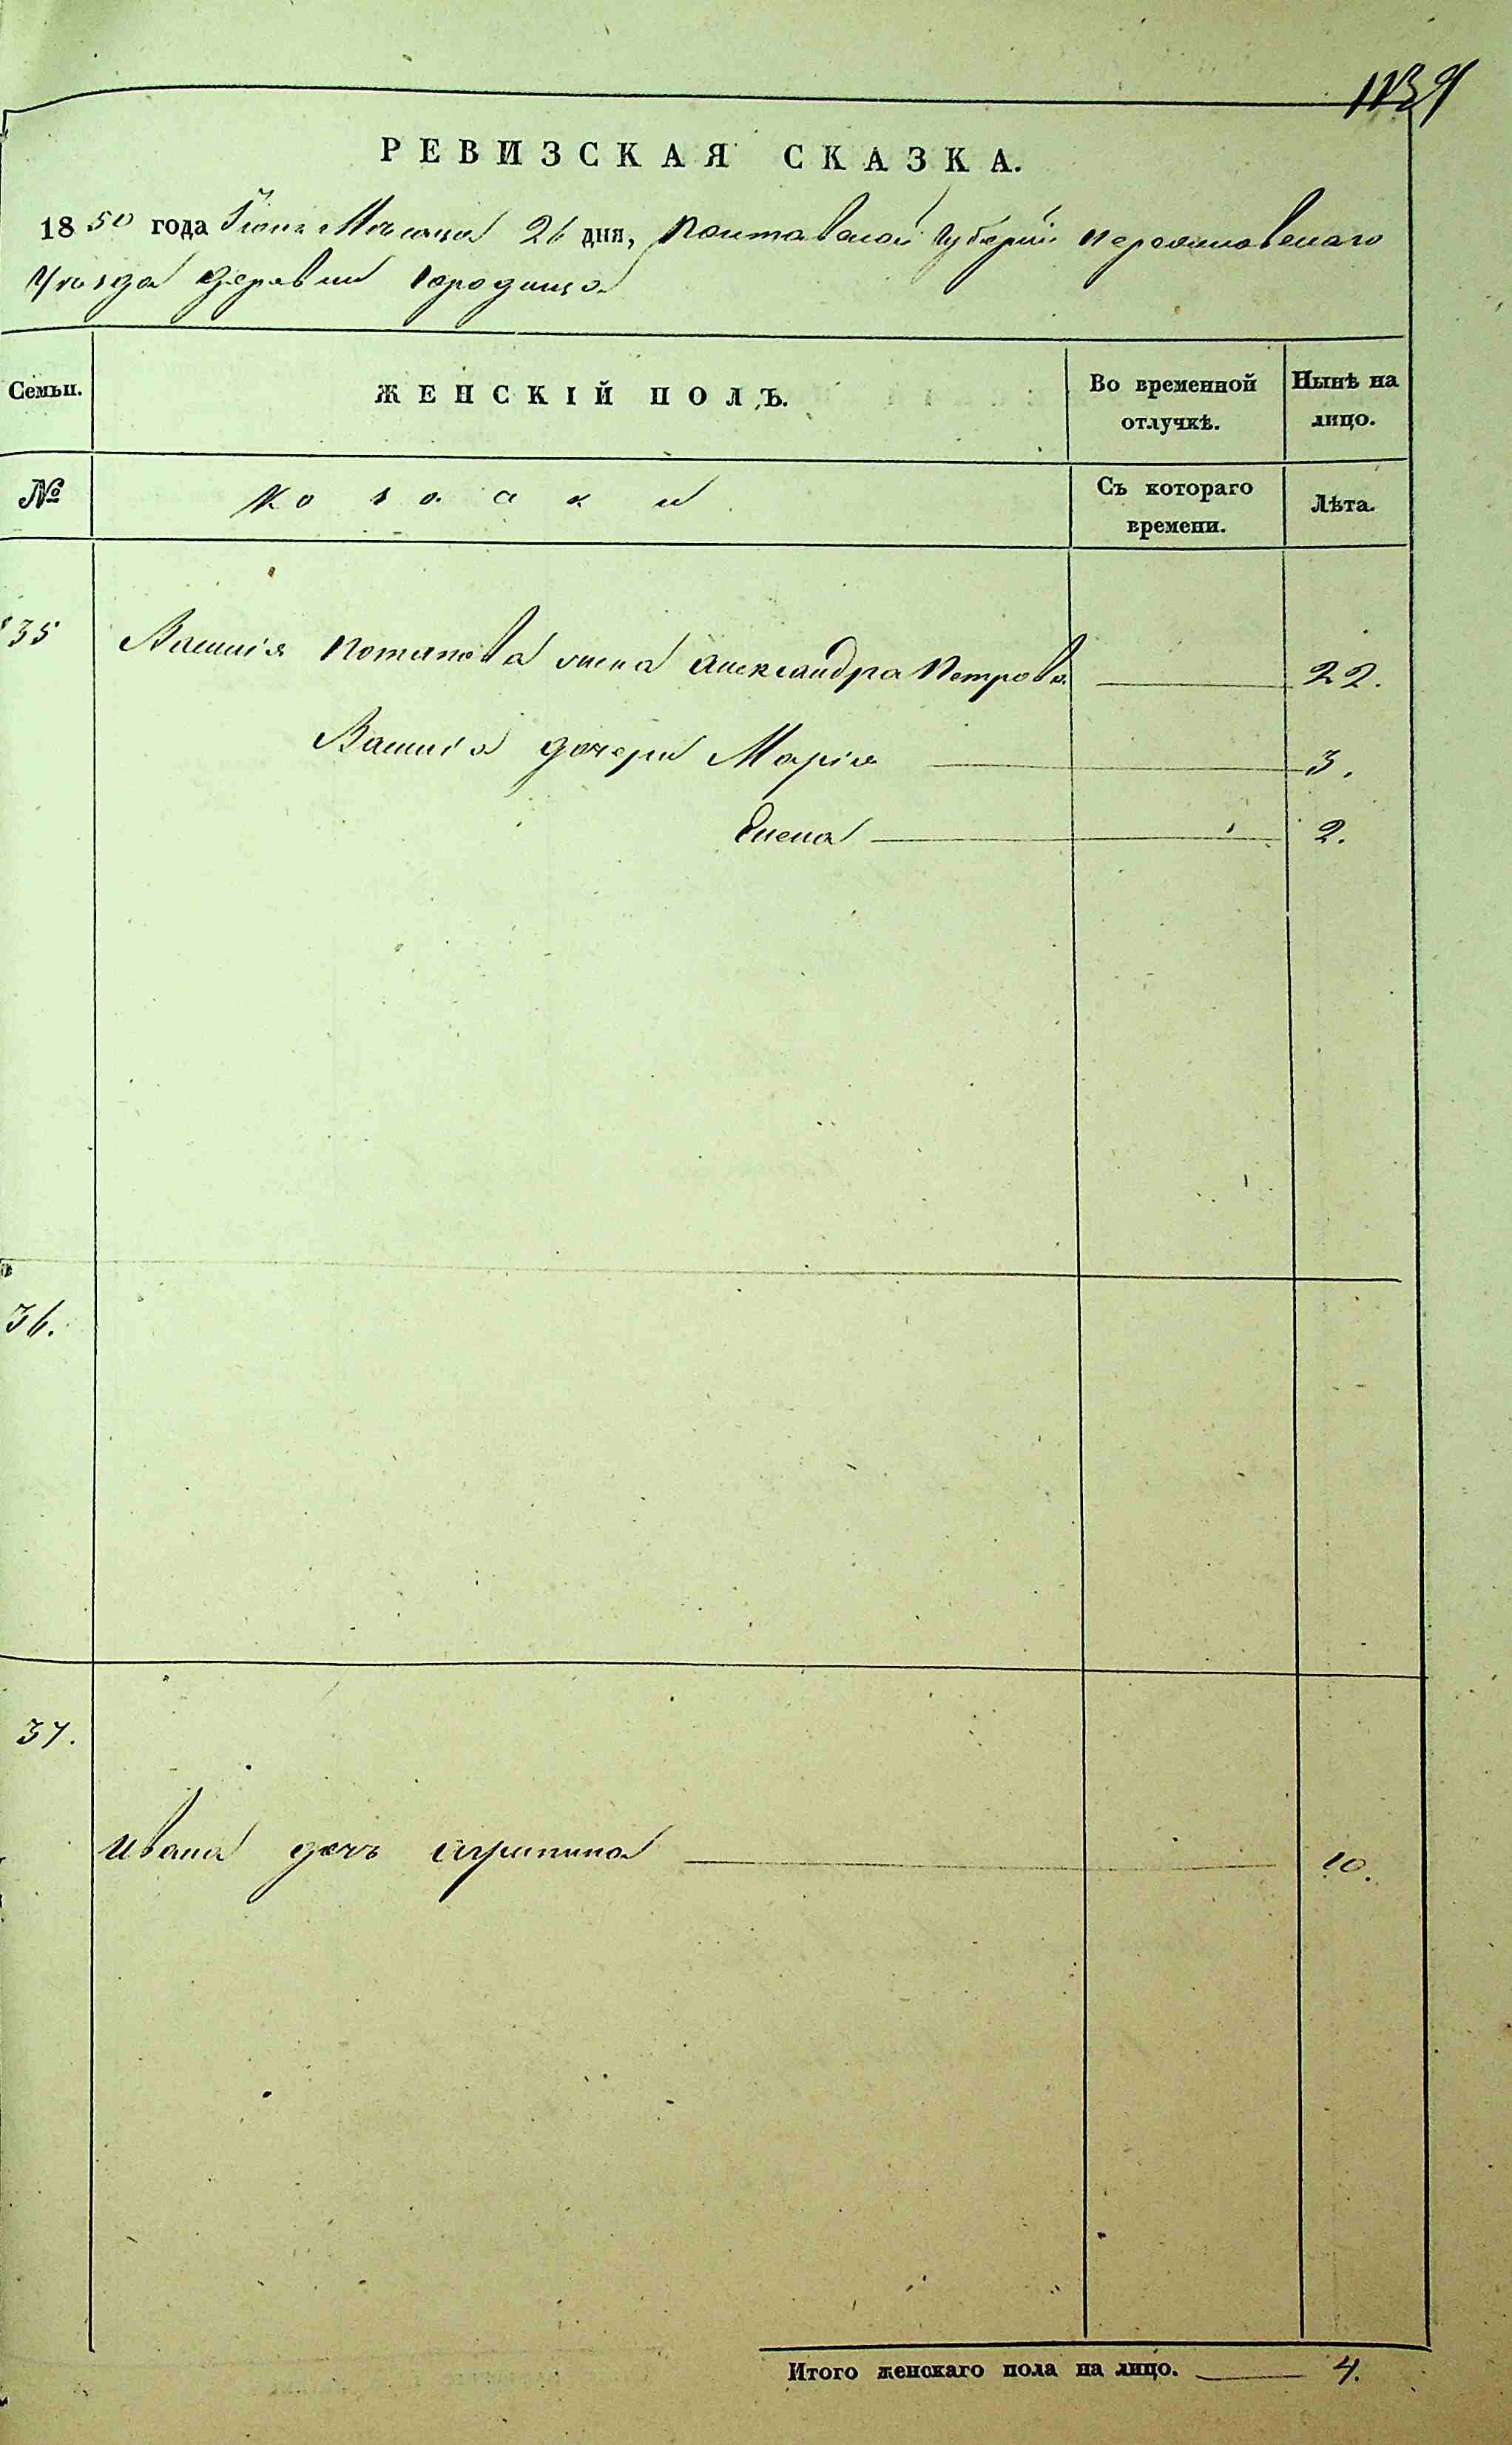 1139
РЕВИЗСКАЯ СКАЗКА.
1850 года Іюня Мѣсяца 26 дня, Полтавской Губерніи Переяславскаго
Уѣзда Деревни Городища
Семьи.
ЖЕНСКІЙ ПОЛЪ.
Во временной отлучкѣ.
Нынѣ на лицо.
№
Козаки
Съ котораго времени.
Лѣта.
35 Василія Потапова жена Александра Петрова 22.
Василія дочери Марія 3.
Елена 2.
36.
37.
Ивана дочь Агрипина 10.
Итого женскаго пола на лицо. 4.